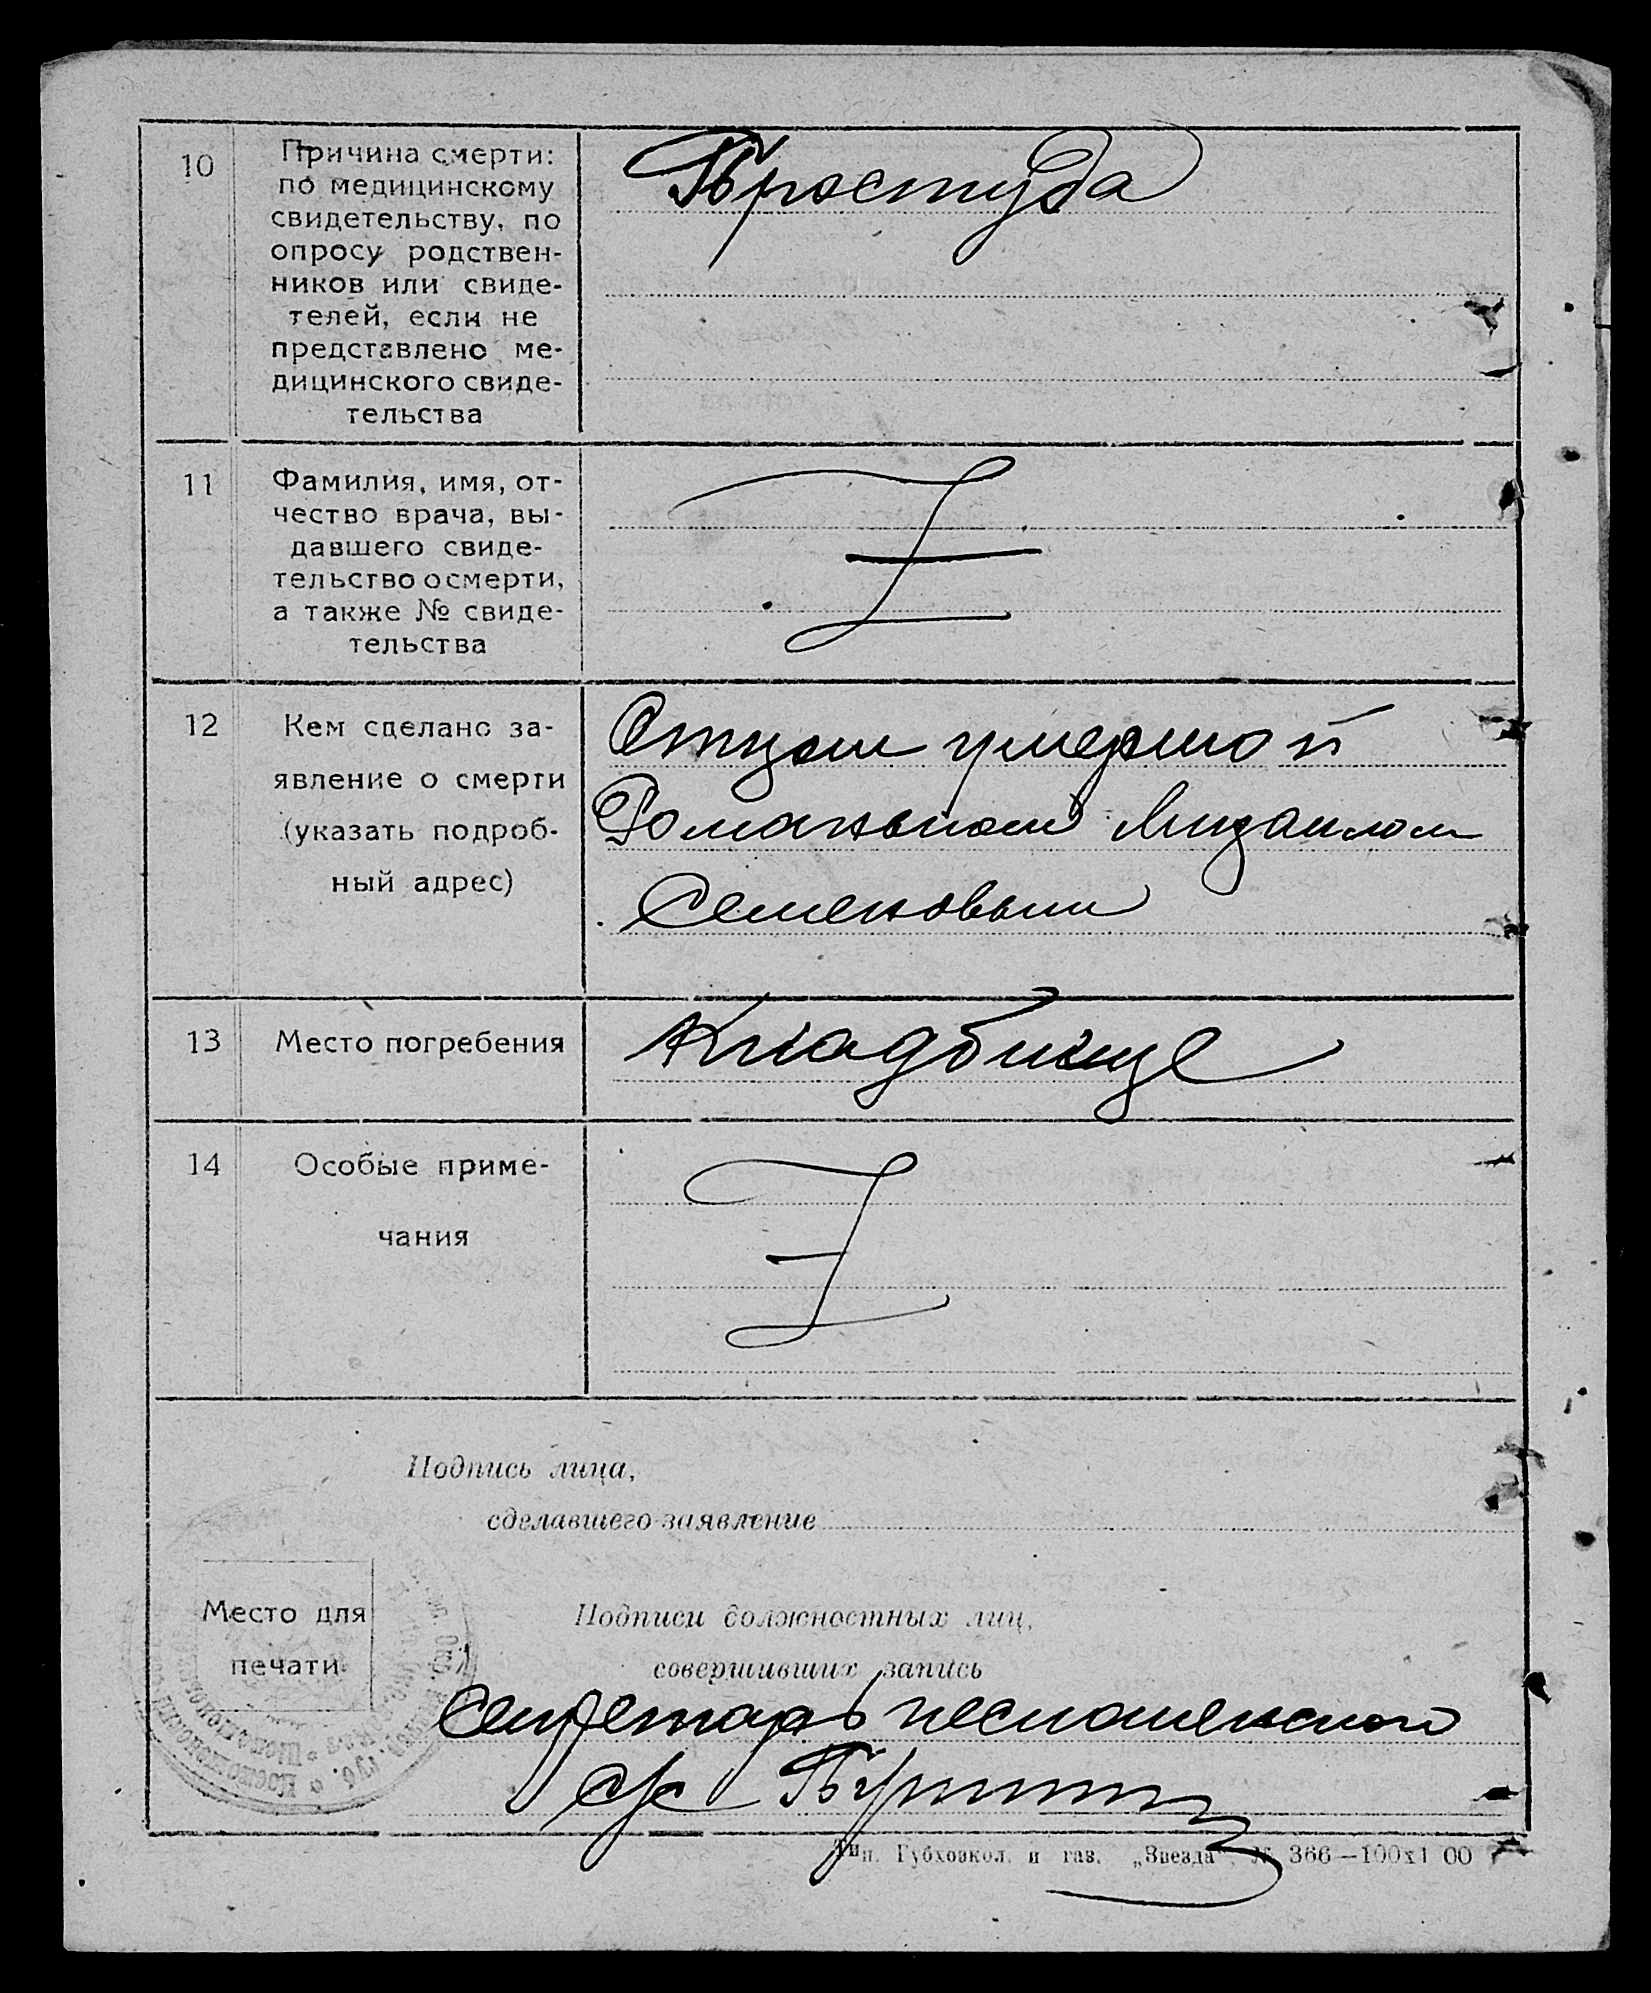 10
Причина смерти:
по медицинскому
свидетельству, по
опросу родствен-
ников или свиде-
телей, если не
представлено ме-
дицинского свиде-
тельства
Простуда
11
Фамилия, имя, от-
чество врача, вы-
давшего свиде-
тельство о смерти,
а также № свиде-
тельства
12
Кем сделано за-
явление о смерти
(указать подроб-
ный адрес)
Отцом умершой
Романьком Михаилом
Семеновым
13
Место погребения
Кладбище
14
Особые приме-
чания
Подпись лица,
сделавшего заявление
Место для
печати
Подписи должностных лиц,
совершивших запись
Секретарь
с/с
Тип. Губхозкол. и газ. „Звезда", № 366—100х1 00